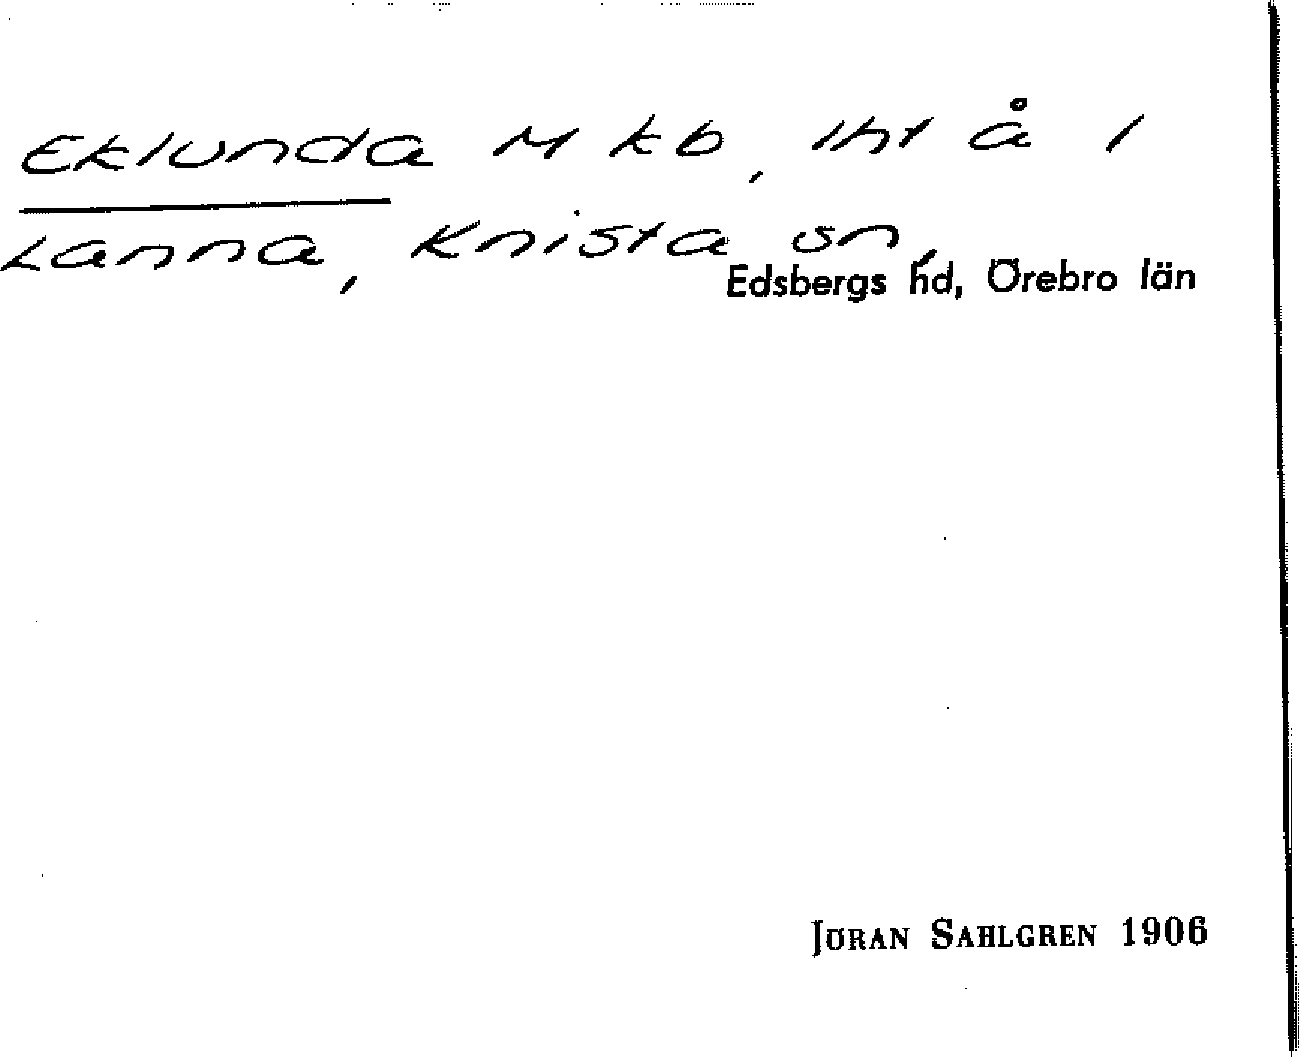 Eklunda M kb, lht å 1
Lanna, Knista sn,
Edsbergs hd, Örebro län
JÖRAN SAHLGREN 1906